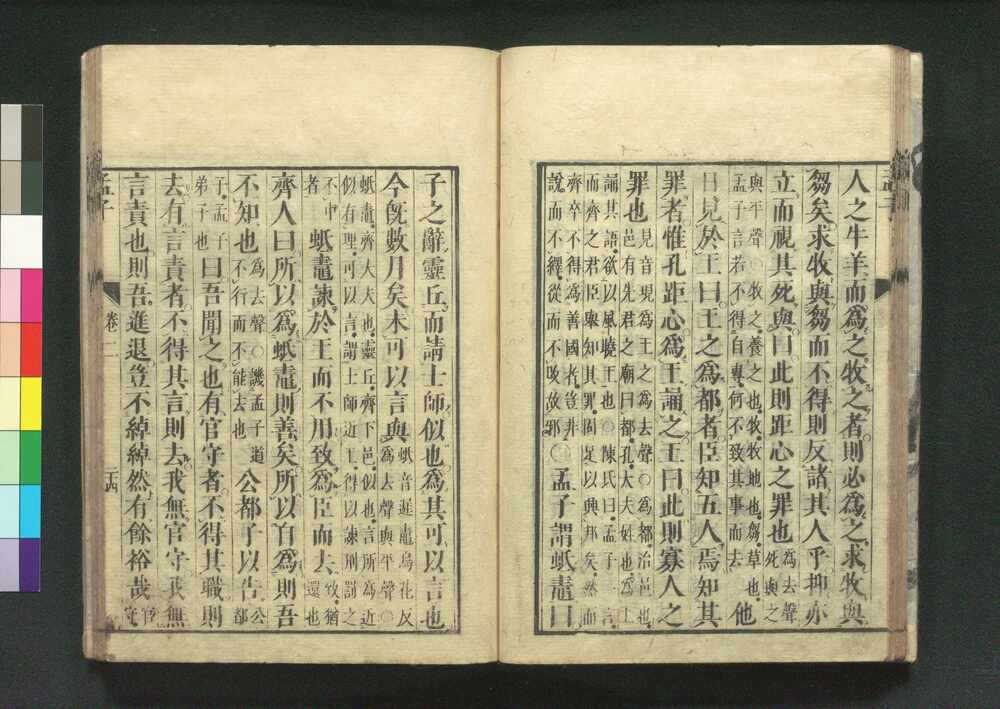 人之牛羊而爲之牧之者則必爲之求牧與
芻矣求牧與芻而不得則反諸其人乎抑亦
立而視其死與曰此則距心之罪也
爲去聲
死與之
與平聲○牧之養之也牧牧地也芻草也
孟子言若不得自專何不致其事而去
他
日見於王曰王之爲都者臣知五人焉知其
罪者惟孔距心爲王誦之王曰此則寡人之
罪也
見音現爲王之爲去聲○爲都治邑也
邑有先君之廟曰都孔大夫姓也爲王
誦其語欲以風曉王也○陳氏曰孟子一言
而齊之君臣舉知其罪固足以興邦矣然而
齊卒不得爲善國者豈非
說而不繹從而不改故邪
○孟子謂蚔鼃曰
子之辭靈丘而請士師似也爲其可以言也
今旣數月矣未可以言與
蚔音遲鼃烏花反
爲去聲與平聲○
蚔鼃齊大夫也靈丘齊下邑似也言所爲近
似有理可以言謂士師近王得以諫刑罰之
不中
者
蚔鼃諫於王而不用致爲臣而去
致猶
還也
齊人曰所以爲蚔鼃則善矣所以自爲則吾
不知也
爲去聲○譏孟子道
不行而不能去也
公都子以告
公
都
子孟子
弟子也
曰吾聞之也有官守者不得其職則
去有言責者不得其言則去我無官守我無
言責也則吾進退豈不綽綽然有餘裕哉
官
守
孟子
卷二